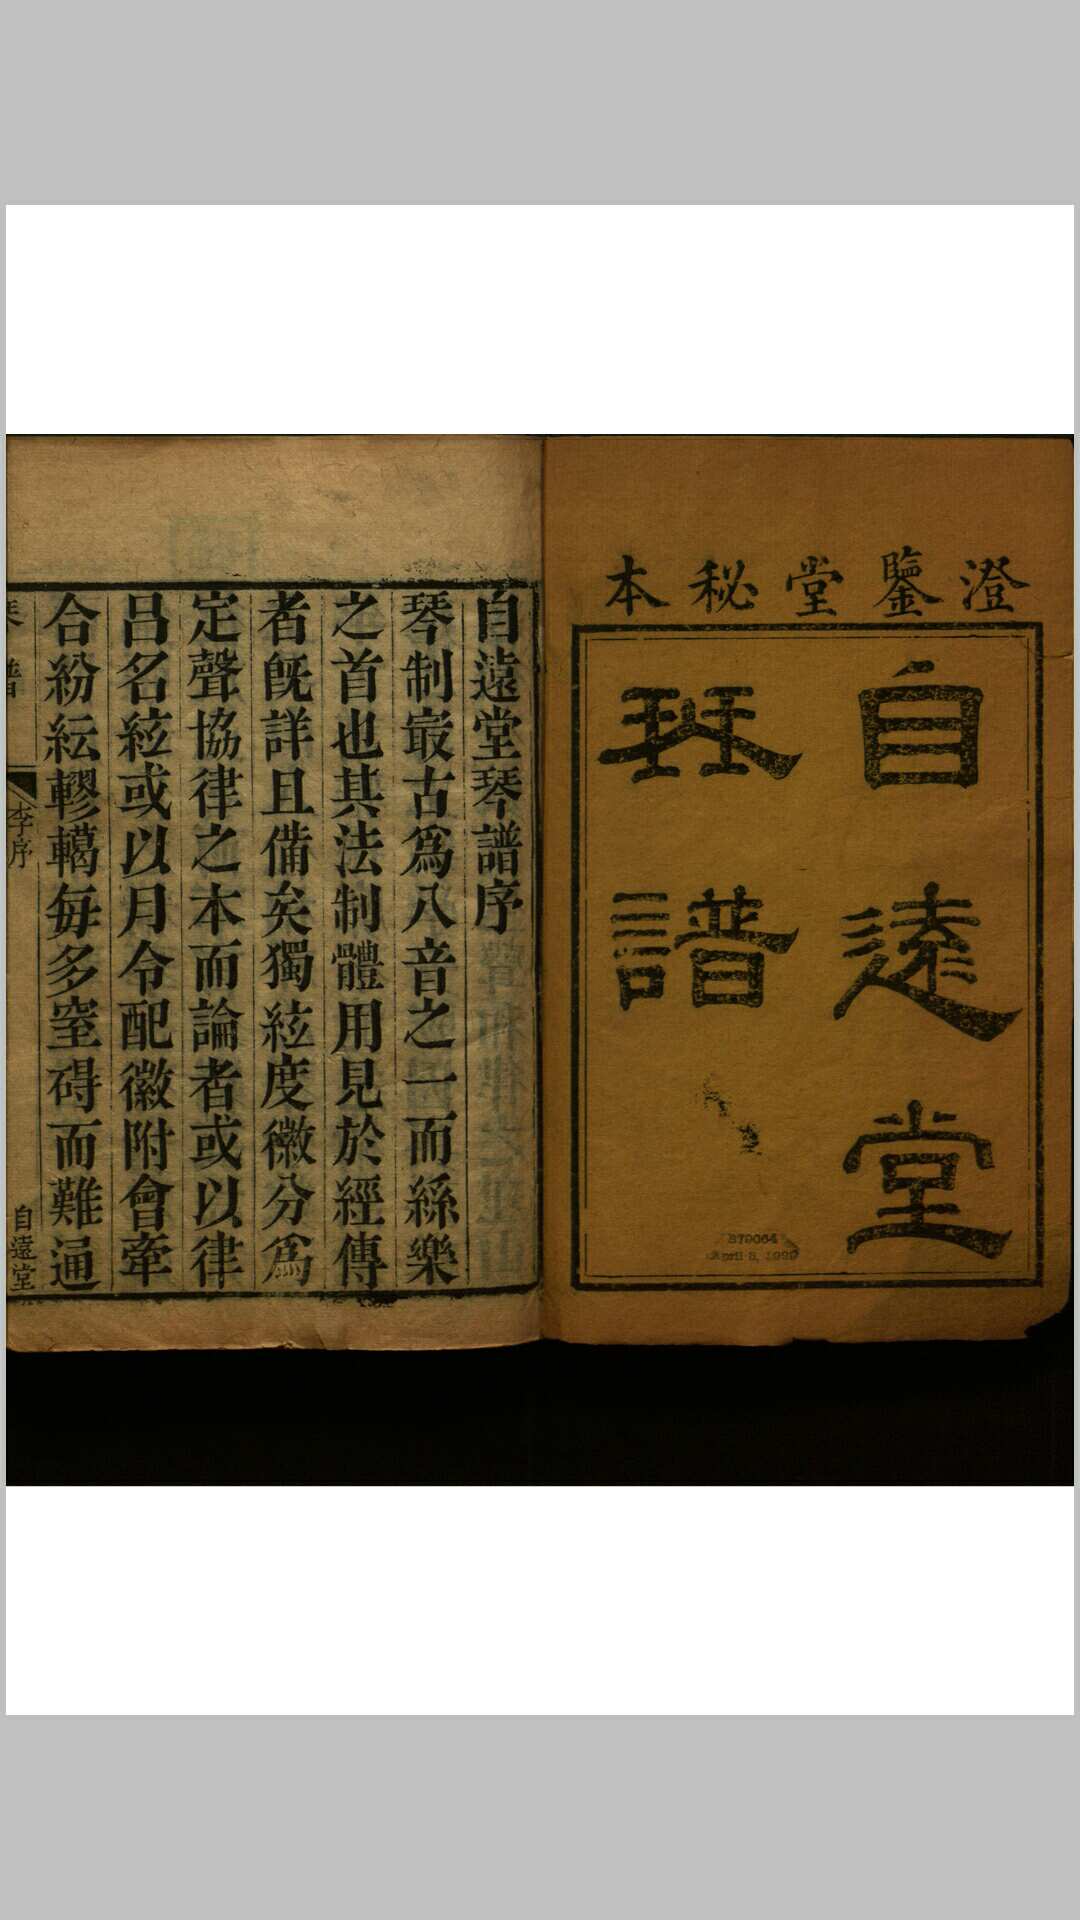 澄鑒堂秘本
自遠堂
琹譜
879064
April 8, 1999
自遠堂琴譜序
琴制㝡古爲八音之一而絲樂
之首也其法制體用見於經傳
者旣詳且備矣獨絃度徽分爲
定聲協律之本而論者或以律
呂名絃或以月令配徽附會牽
合紛紜轇轕每多窒碍而難通
李序
自遠堂